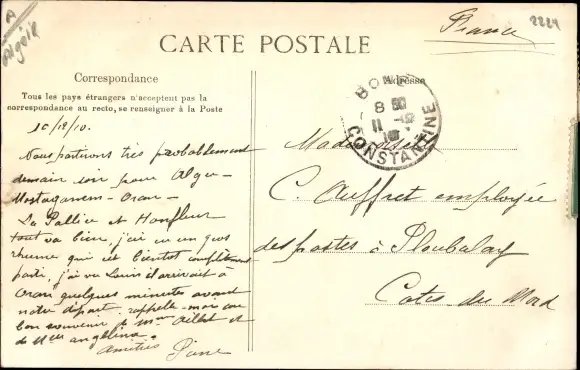 A
Algérie
2224
France
CARTE POSTALE
Correspondance
Tous les pays étrangers n'acceptent pas la
correspondance au recto, se renseigner à la Poste
Adresse
BONE
8
11 -12
10
CONSTANTINE
10/12/10.
Nous partirons très probablement
demain soir pour Alger -
Mostaganem - Oran -
La Pallice et Honfleur
tout va bien, j'ai eu un gros
rhume qui est bientôt complètement
parti, j'ai vu Louis il arrivait à
Oran quelques minutes avant
notre départ. rappelle-moi au
bon souvenir de Mme et
de Melle angelina.
amitiés
Mademoiselle
C. Auffret employée
des postes à Ploubalay
Côtes du Nord